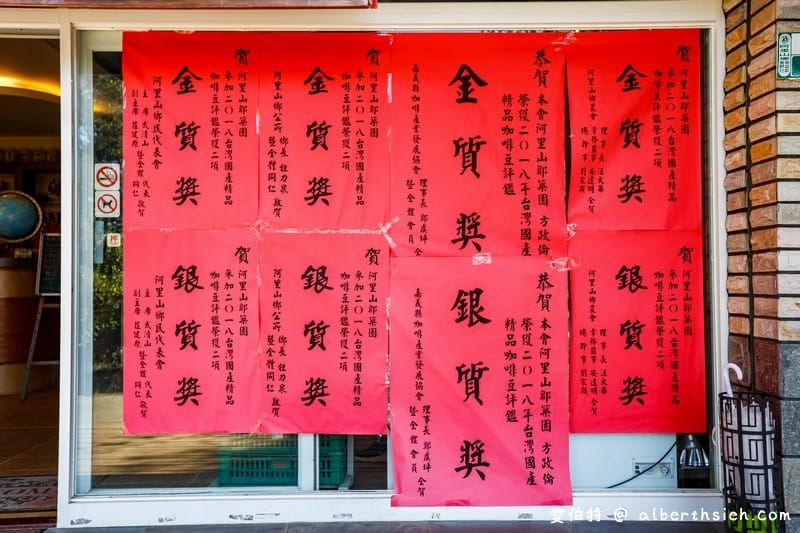 賀
阿里山鄒築園
參加二〇一八台灣國產精品
咖啡豆評鑑榮獲二項
金質獎
阿里山鄉農會
理事長 汪火華
常務監事 安達明
總幹事 劉家顯
仝賀
恭賀
本會阿里山鄒築園 方政倫
榮獲二〇一八年台灣國產
精品咖啡豆評鑑
金質獎
嘉義縣咖啡產業發展協會
理事長 郭虞坪
暨全體會員 仝賀
賀
阿里山鄒築園
參加二〇一八台灣國產精品
咖啡豆評鑑榮獲二項
金質獎
阿里山鄉公所
鄉長 杜力泉
暨全體同仁 敬賀
賀
阿里山鄒築園
參加二〇一八台灣國產精品
咖啡豆評鑑榮獲二項
金質獎
阿里山鄉民代表會
主席 武清山
副主席 莊健原
暨全體 代表 同仁 敬賀
賀
阿里山鄒築園
參加二〇一八台灣國產精品
咖啡豆評鑑榮獲二項
銀質獎
阿里山鄉農會
理事長 汪火華
常務監事 安達明
總幹事 劉家顯
仝賀
恭賀
本會阿里山鄒築園 方政倫
榮獲二〇一八年台灣國產
精品咖啡豆評鑑
銀質獎
嘉義縣咖啡產業發展協會
理事長 郭虞坪
暨全體會員 仝賀
賀
阿里山鄒築園
參加二〇一八台灣國產精品
咖啡豆評鑑榮獲二項
銀質獎
阿里山鄉公所
鄉長 杜力泉
暨全體同仁 敬賀
賀
阿里山鄒築園
參加二〇一八台灣國產精品
咖啡豆評鑑榮獲二項
銀質獎
阿里山鄉民代表會
主席 武清山
副主席 莊健原
暨全體 代表 同仁 敬賀
艾伯特 @ alberthsieh.com